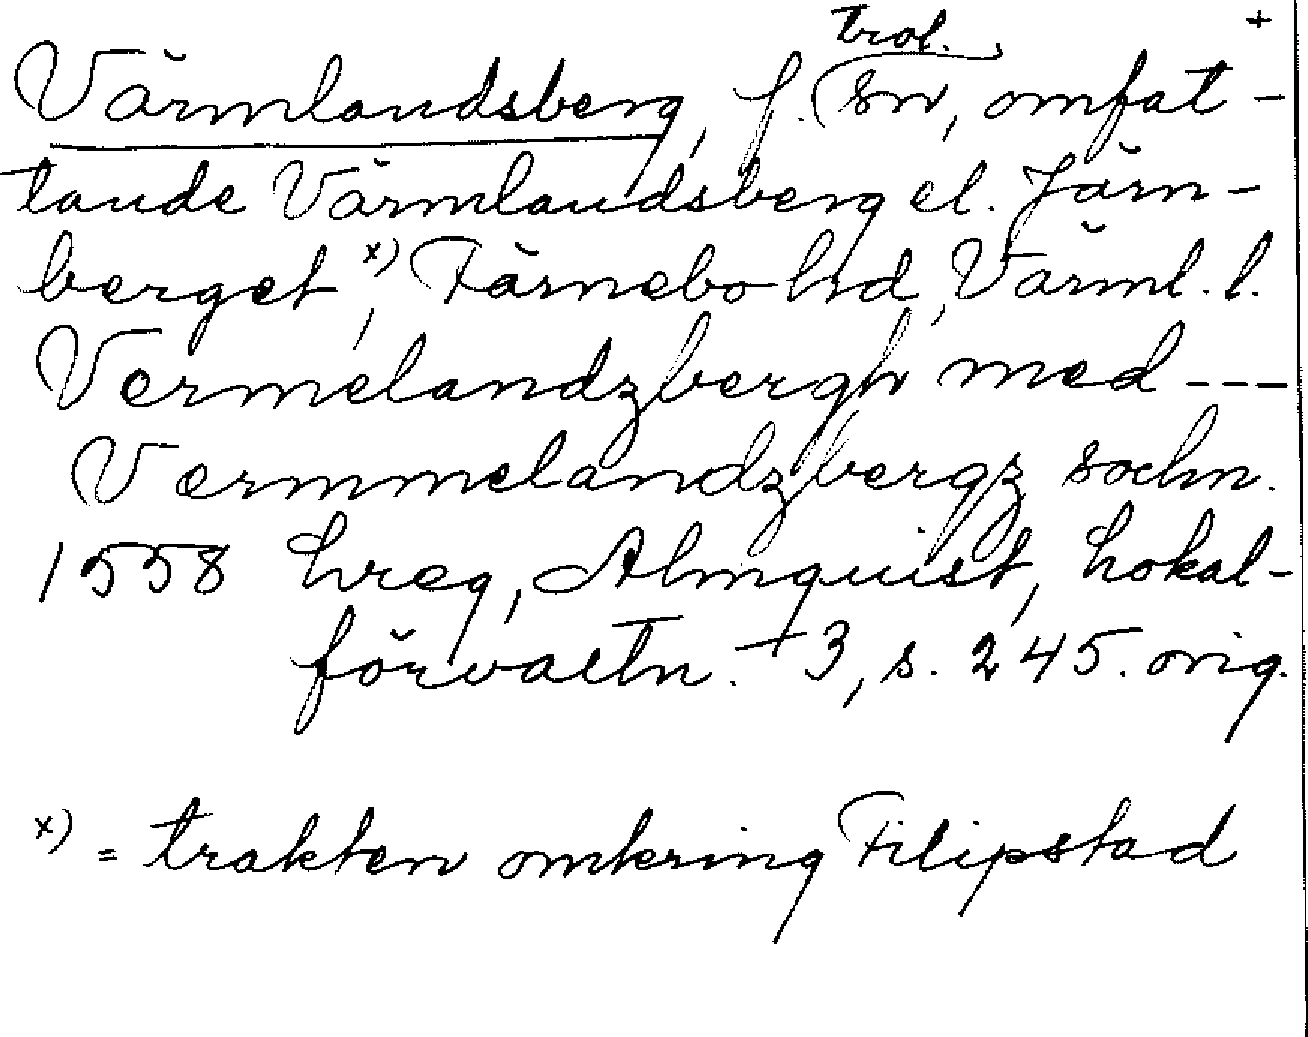 trol. +
Värmlandsberg, f. sn, omfat-
tande Värmlandsberg el. Järn-
berget x), Färnebo hd, Värml. l.
Vermelandzbergh med ---
Vermmelandzbergz sochn.
1558 hreg, Almquist, Lokal-
förvaltn. 3, s. 245. orig.
x) = trakten omkring Filipstad